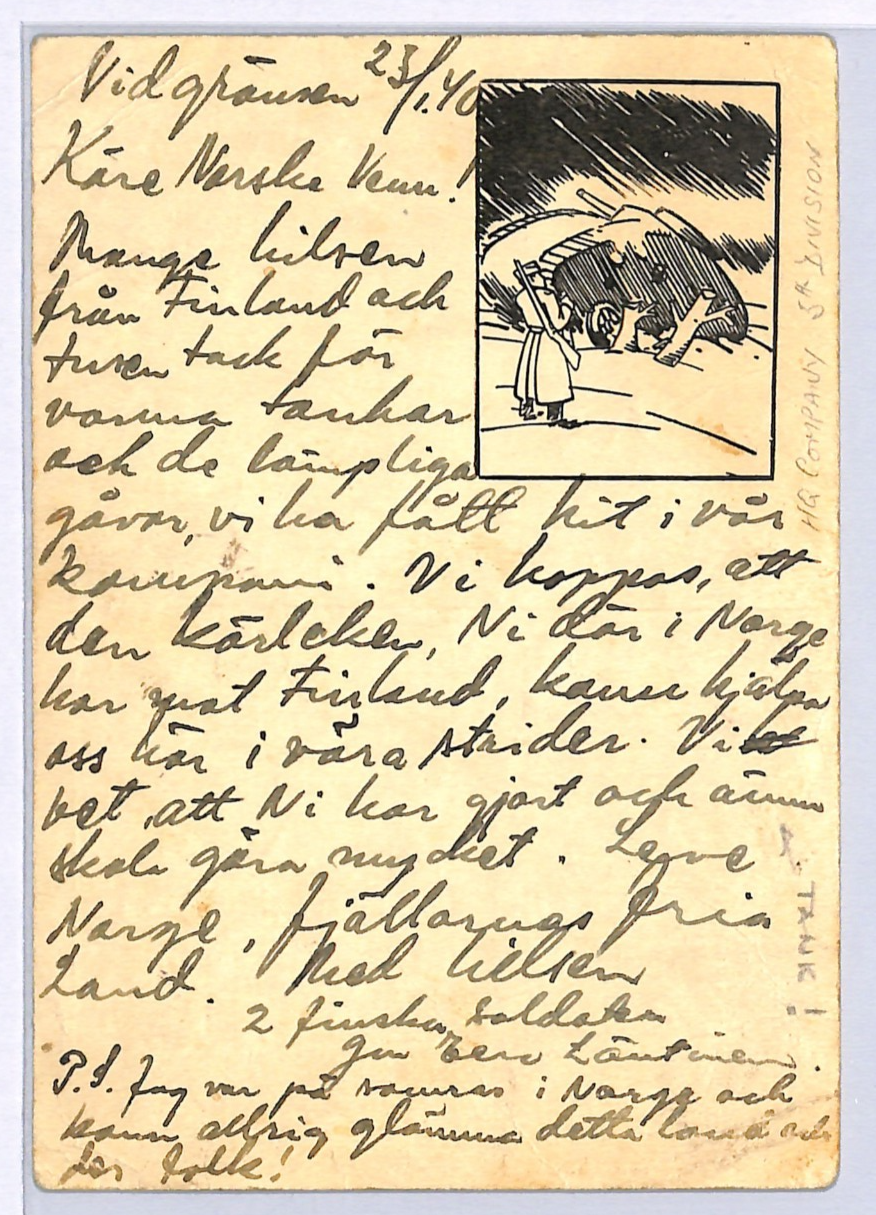 Vid gränsen 23/1.40
Käre Norske Venn!
Mange hilsen
från Finland och
tusen tack för
varma tankar
och de lämpliga
gåvor, vi ha fått hit i vår
kompani. Vi hoppas, att
den kärleken, Ni där i Norge
har mot Finland, kann hjälpa
oss här i våra strider. Vi
vet, att Ni har gjort och ännu
skola göra mycket. Leve
Norge, fjällarnas fria
Land. Med hilsen
2 finska soldater
Eero Läntinen.
P.S. Jag var på somras i Norge och
kann aldrig glömma detta land och
des folk!
HQ COMPANY 5th DIVISION
TANK!